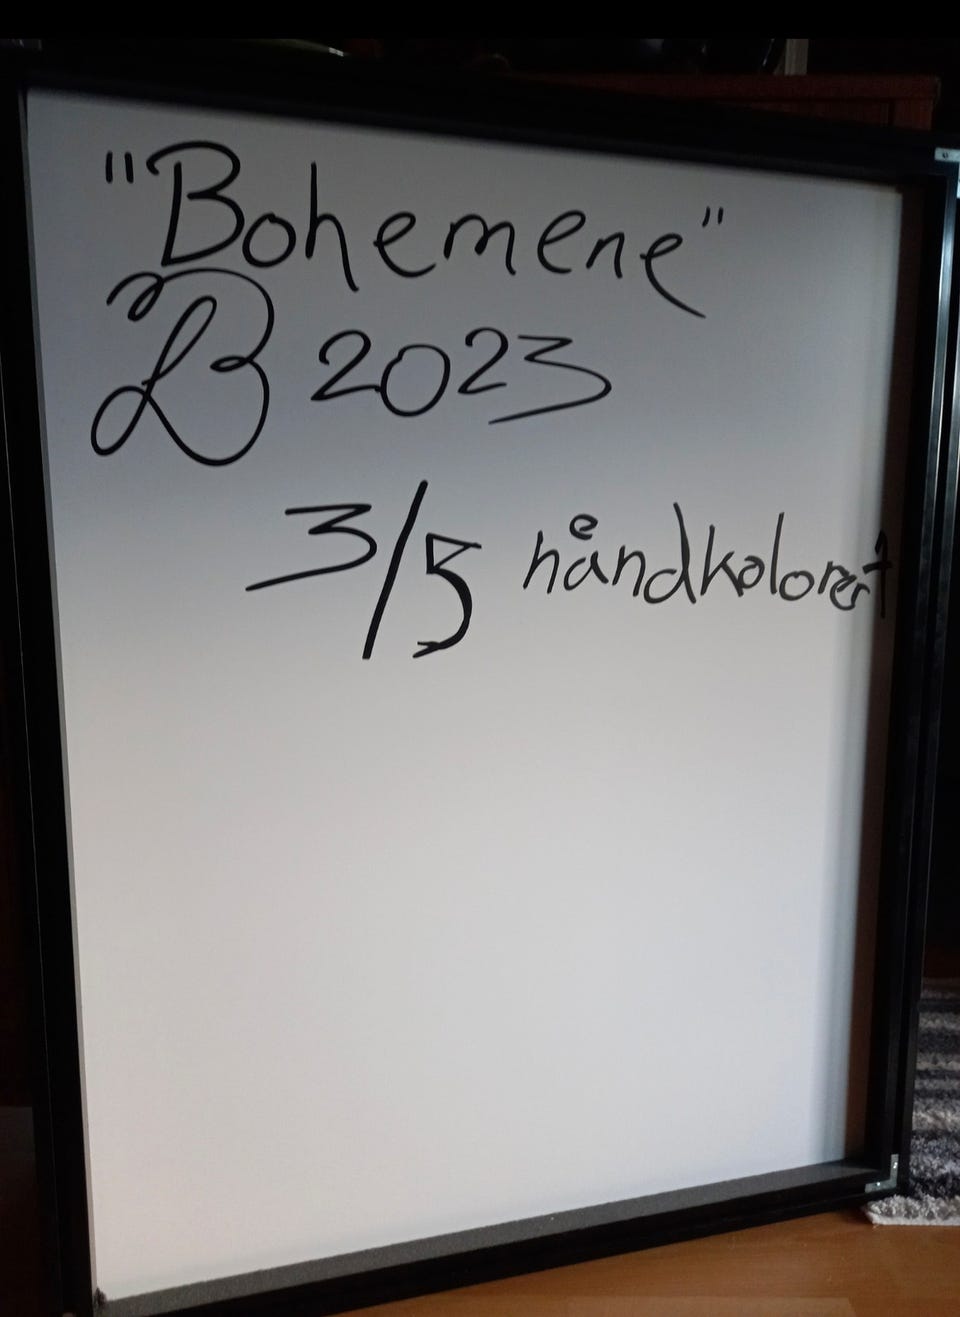 "Bohemene"
B 2023
3/5 håndkolorert